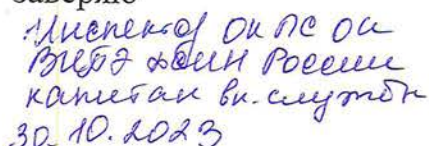 заверяю
Инспектор ОК ЛС ОК
ФСИН России
капитан вн. службы
30.10.2023